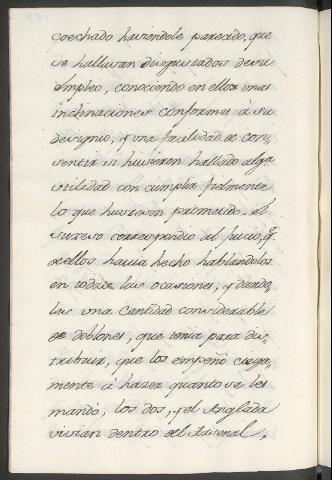 coechado haviendole parecido, que
se hallavan disgustados de su
empleo, conociendo en ellos unas
inclinaciones conformes à su
designio, y una facilidad de con-
sentir si huviesen hallado alga
utilidad con cumplir fielmente
lo que huviesen prometido. El
suceso correspondio al Juicio, q.
de ellos havia hecho hablandolos
en todas las ocasiones, y dando-
les una cantidad considerable
de doblones, que tenia para dis-
tribuir, que los empeñó ciega-
mente à hazer quanto se les
mandò, los dos, y el Anglada
vivian dentro del Arsenal,